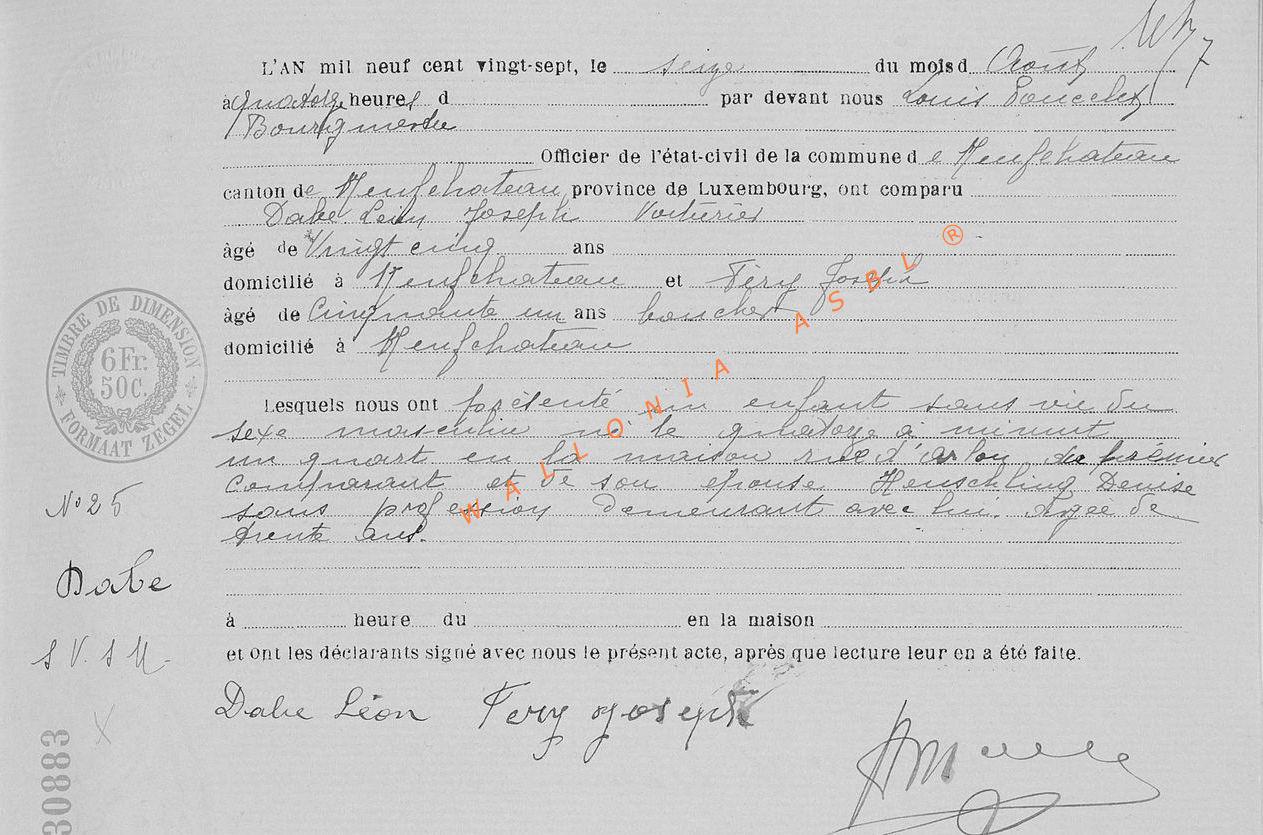 L'AN mil neuf cent vingt-sept, le seize du mois d Août
à quatorze heures d par devant nous Louis
Bourgmestre
Officier de l'état-civil de la commune d e Neufchateau
canton de Neufchateau province de Luxembourg, ont comparu
Dabe Léon Joseph Voiturier
âgé de Vingt cinq ans
domicilié à Neufchateau et Féry Joseph
âgé de Cinquante un ans boucher
domicilié à Neufchateau
Lesquels nous ont présenté un enfant sans vie du
sexe masculin né le quatorze à minuit
un quart en la maison rue d'Arlon du prémier
Comparant et de son épouse Henschling Denise
sans profession demeurant avec lui. Agée de
trente ans.
à heure du en la maison
et ont les déclarants signé avec nous le présent acte, après que lecture leur en a été faite.
Dabe Léon Fery Joseph
TIMBRE DE DIMENSION
6Fr.
50c.
FORMAAT ZEGEL
No 25
Dabe
s V. s M.
30883
WALLONIA ASBL ®